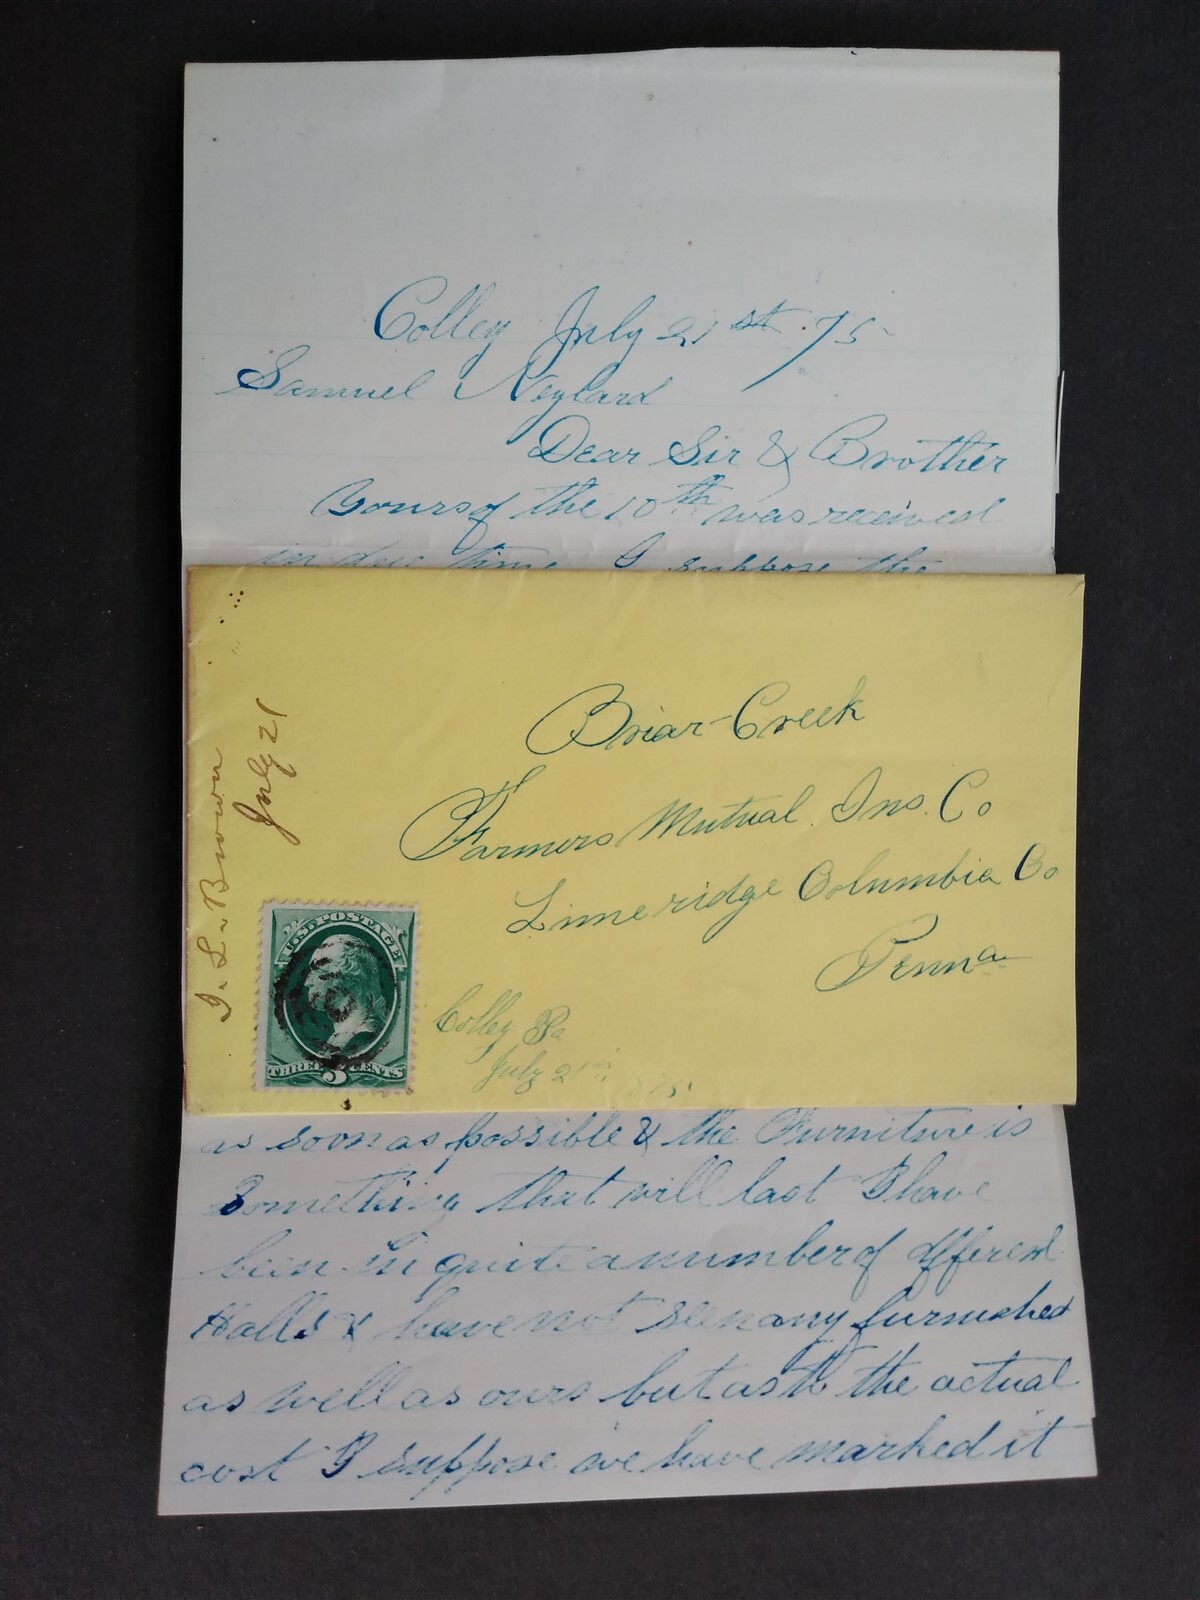 Colley July 21st 75
Samuel Neyhard
Dear Sir & Brother
Yours of the 10th was received
in due time I suppose the
Briar-Creek
Farmers Mutual Ins. Co
Limeridge Columbia Co
Penna
J. L. Brown
July 21
U.S. POSTAGE
THREE 3 CENTS
Colley Pa
July 21st
1875
as soon as possible & the Furniture is
Something that will last I have
been in quite a number of different
Halls & have not seen any furnished
as well as ours but as to the actual
cost I suppose we have marked it